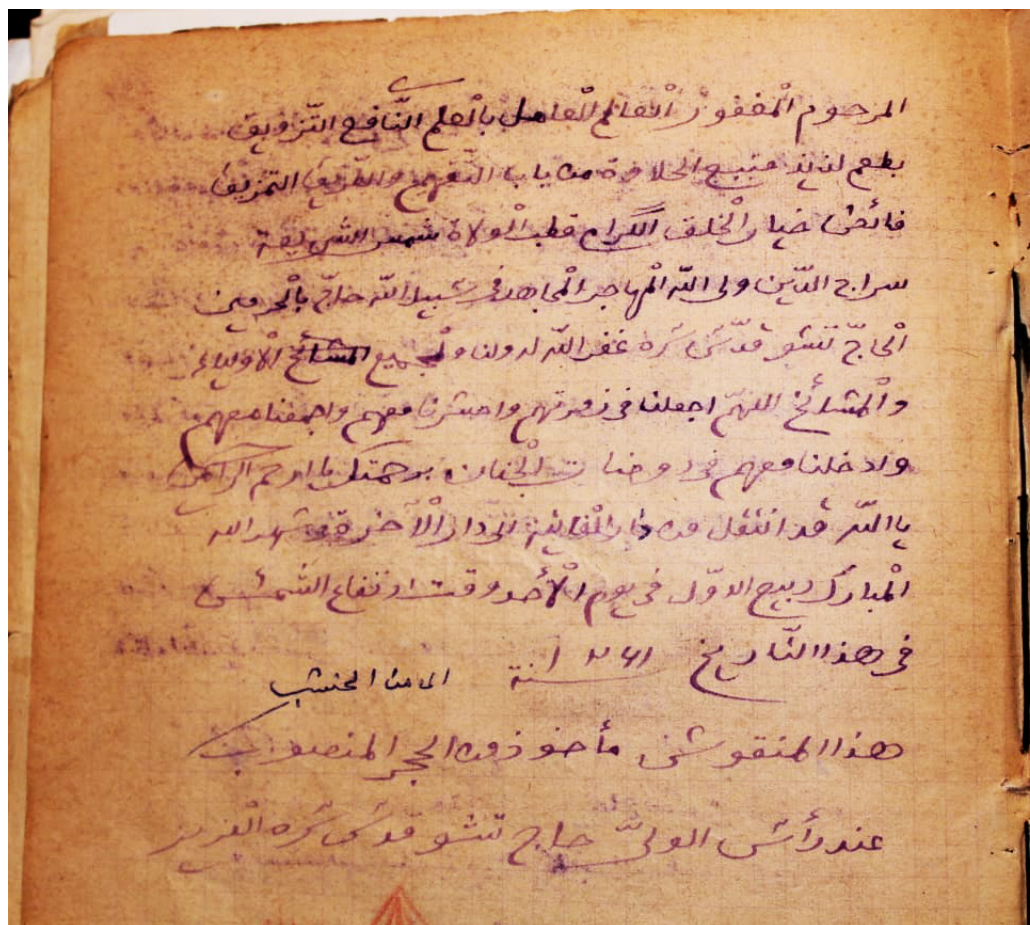 المرحوم المغفور العالم العامل بالعلم النّافع
بطعم لذيذ الحلاوة من باب
فائض خيار الخلق الكرام قطب الولاة شمس الشريعة
سراج الدّين ولى اللّه المهاجر المجاهد فى سبيل اللّه حاجّ بالحرمين
الحاجّ تشو قدّس سرّه غفر اللّه له ولنا ولجميع المشائخ الأولياء
والمشائخ اللهمّ اجعلنا فى زمرتهم واحشرنا معهم واجمعنا معهم
وادخلنا معهم فى روضات الجنان برحمتك يا ارحم الراحمين
يا اللّه قد انتقل من دار الفانية الى دار الآخرة شهر اللّه
المبارك ربيع الاوّل فى يوم الأحد وقت ارتفاع الشّمس
فى هذا التّاريخ سنة
هذا المنقوش مأخوذ من الحجر المنصوب
عند رأس الولىّ حاج تشو قدّس سرّه العزيز